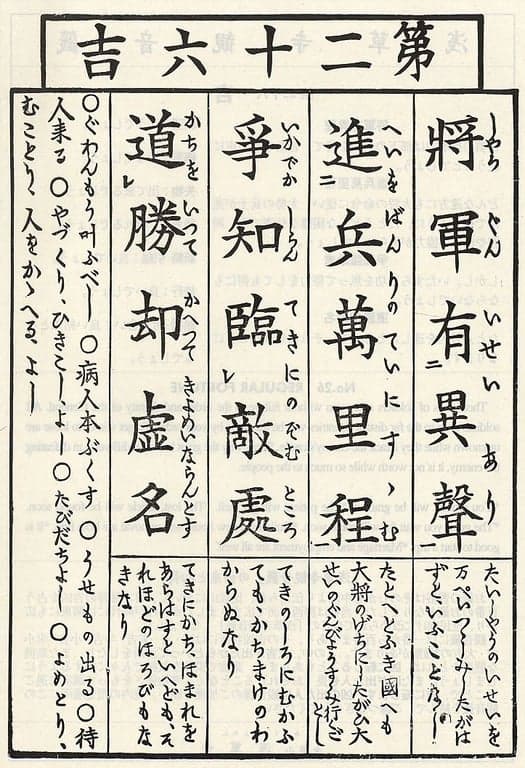 第二十六吉
將軍有異聲
しやうぐんいせいあり
たいしやうのいせいを
ずといふ
進兵萬里程
へいをばんりのていにすゝむ
たとへとふき國へも
大将のげぢにしたがひ大
せいのぐんぴやうすゝみ行ごとし
爭知臨敵處
いかでかしらんてきにのぞむところ
てきのところにむかふ
てもかちまけのわ
からぬなり
道勝却虚名
かちをいつてかへつてきよめいならんとす
てきにかち、ほまれを
あらはすといへども、そ
れほどのほろびもな
きなり
○ぐわんもう叶ふべし ○病人本ぶくす ○うせもの出る ○待
人来る ○やづくり、ひきこし、○たびだちよし ○よめとり、
むことり、人をかゝへる、よし
No.26 REGULAR FORTUNE